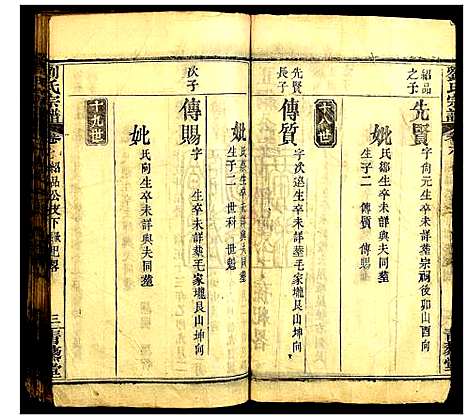 劉氏宗譜
紹品之子
先賢 字尙元生卒未詳葬宗祠後卯山酉向
妣 氏鄒生卒未詳與夫同塋
生子二 傳質 傳賜
十八世
先賢長子
傳質 字次廻生卒未詳葬毛家壠艮山坤向
妣 氏蔡生卒未詳與夫同塋
生子二 世科 世魁
次子
傳賜 字 生卒未詳葬毛家壠艮山坤向
妣 氏 生卒未詳與夫同塋
十九世
劉氏宗譜
卷 紹品公支下 紀畧
三 青藜堂